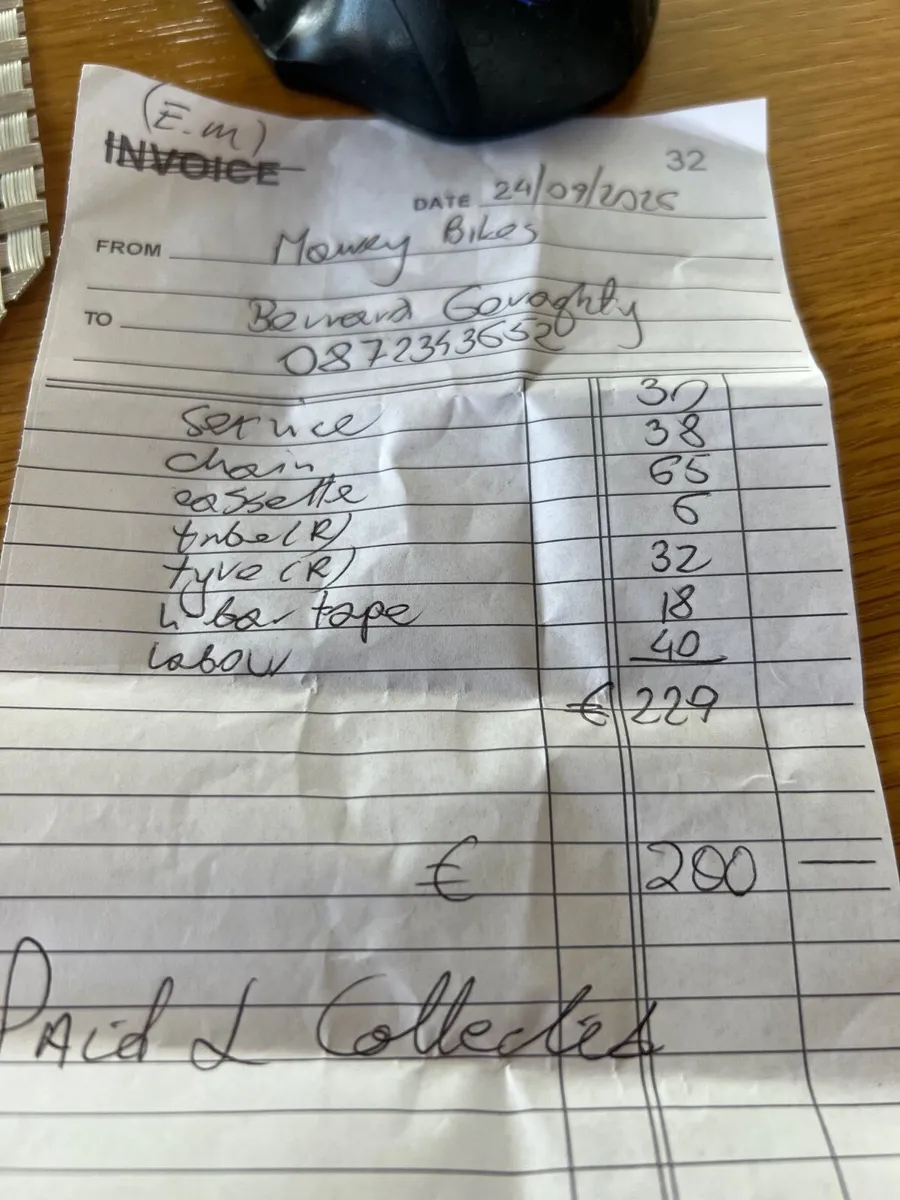 (E.m)
INVOICE
32
DATE 24/09/2025
FROM Mowey Bikes
TO Bernard Geraghty
0872343652
service 30
chain 38
cassette 65
tube (R) 6
tyre (R) 32
h-bar tape 18
labour 40
€ 229
€ 200 —
Paid & Collected